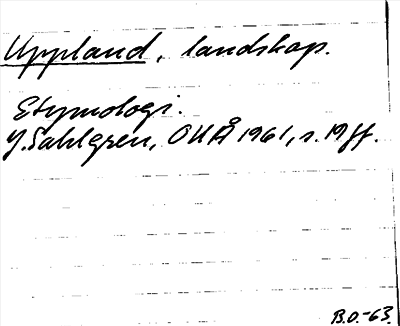 Uppland, landskap.
Etymologi.
J. Sahlgren, OUÅ 1961, s. 19 ff.
B.O.-63.